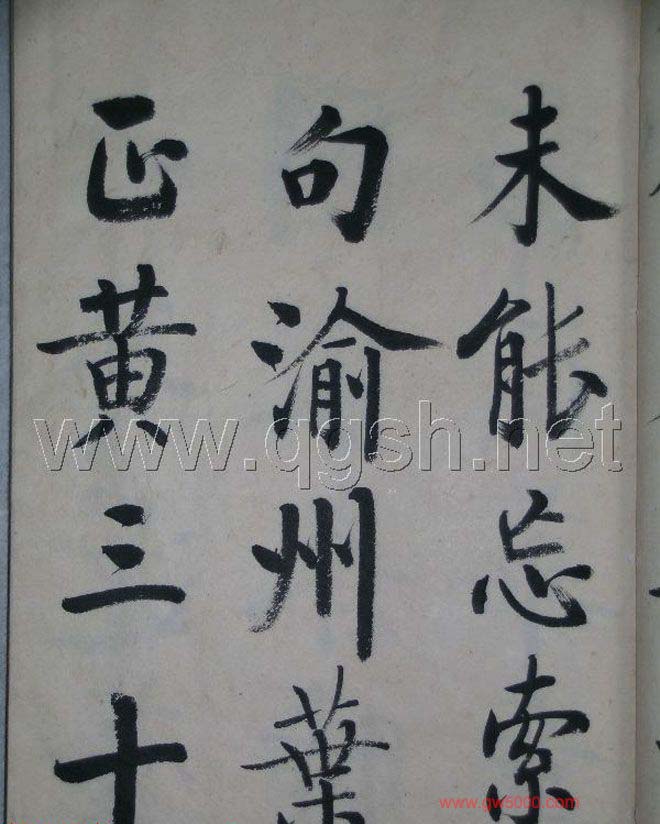 未能忘索
句渝州葉
正黄三十
www.qgsh.net
www.gw5000.com